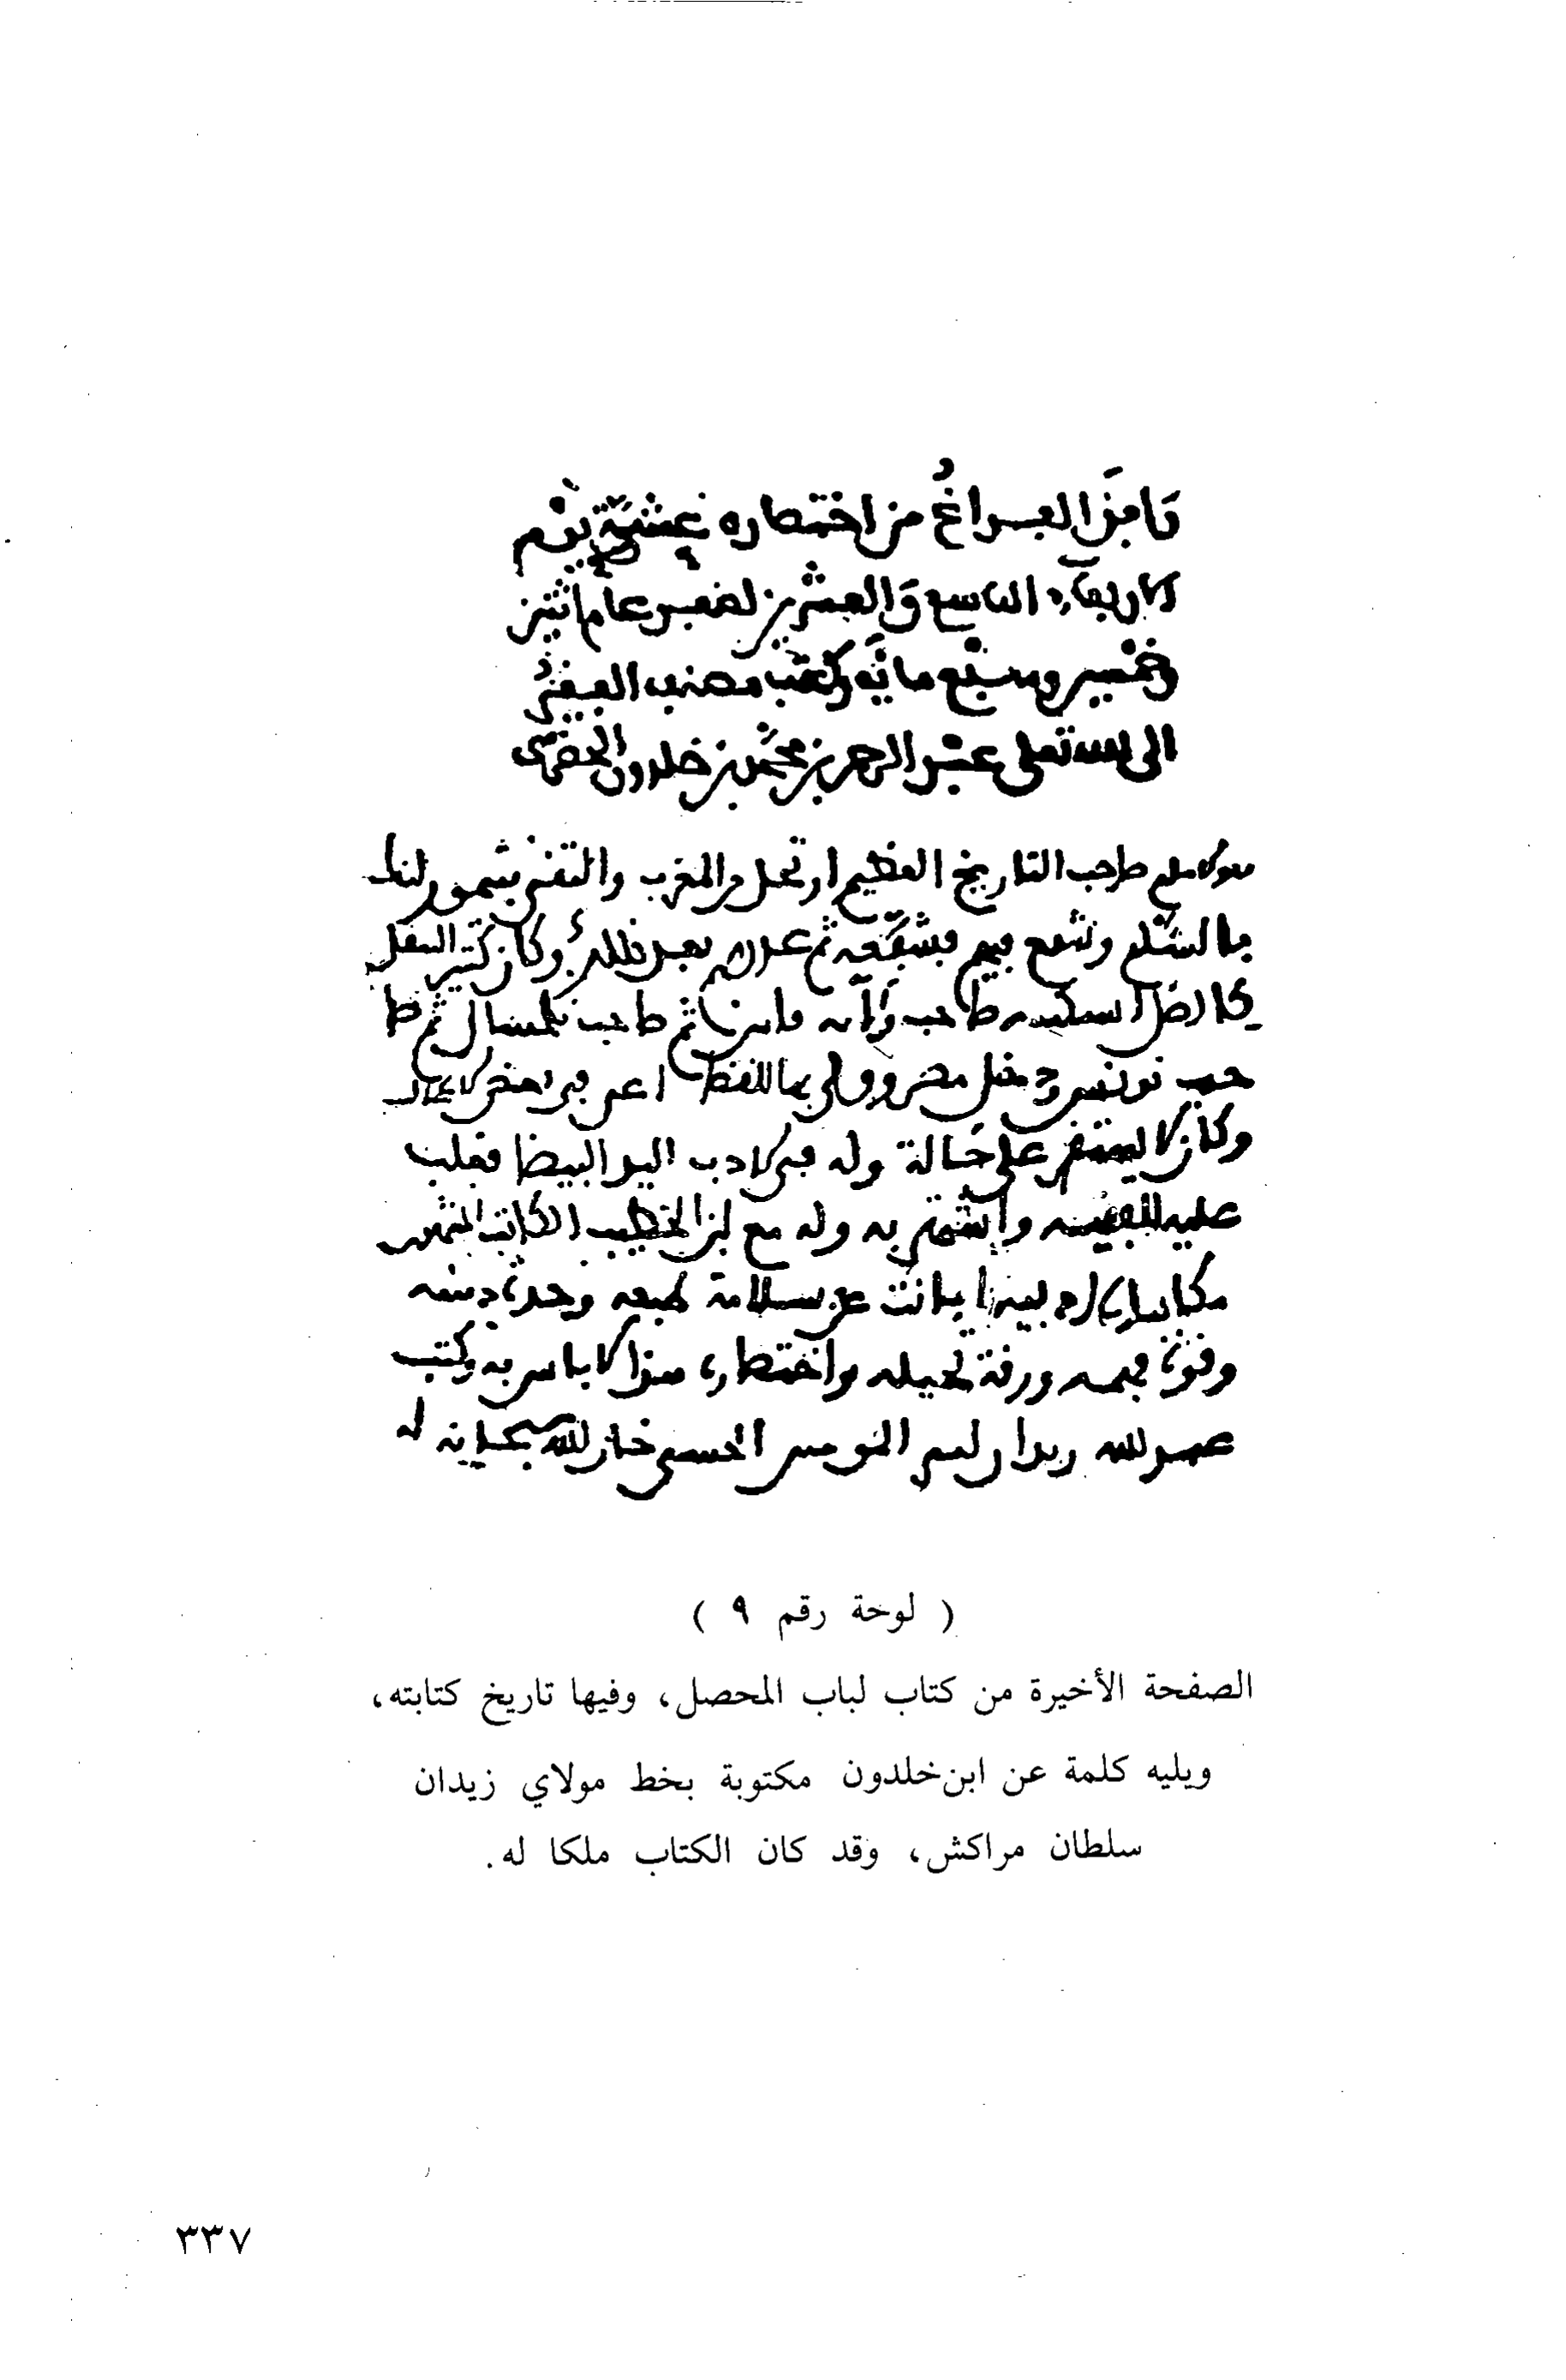 وافق الفراغ من اختصاره عشية يوم
الاربعاء التاسع والعشرين لصفر عام اثنين
وخمسين وسبع ماية وكتب مصنفه الفقيرُ
الى الله تعلى عبد الرحمن بن محمد بن خلدون الحضرمي
صاحب التاريخ العظيم ارتحل من المغرب والتقى بتيمور لنك
بالشام وشفع فيهم فشفعه ثم بعد ذلك وكان كثير التنقل
صاحب فاس ثم صاحب تلمسان ثم صا
حب تونس ودخل مصر وولي بها القضا
وكان لا يستقر على حالة وله في الادب اليد البيضا فغلب
عليه واشتهر به وله مع ابن الخطيب الكاتب
بانت عن سلامة طبعه وحدة ذهنه
وقوة فهمه ورقة تخيله واختصاره هذا لا باس به وكتب
عبد الله زيدان امير المومنين الحسني خار الله سبحانه له
( لوحة رقم ٩ )
الصفحة الأخيرة من كتاب لباب المحصل، وفيها تاريخ كتابته،
ويليه كلمة عن ابن خلدون مكتوبة بخط مولاي زيدان
سلطان مراكش، وقد كان الكتاب ملكا له.
٣٣٧